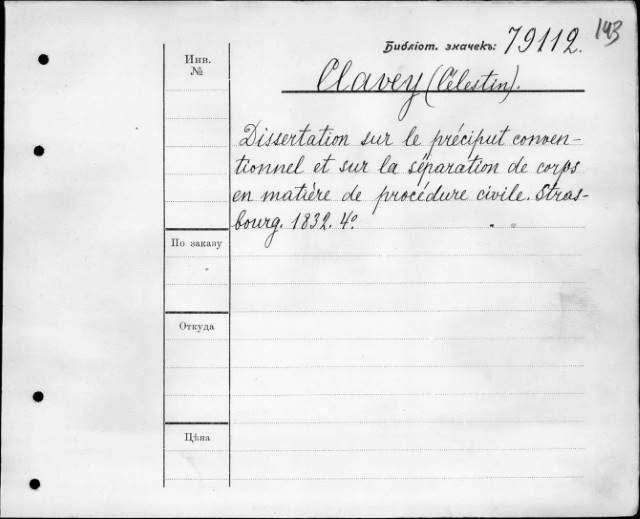 143
Библіот. значекъ: 79112.
Инв. №
Clavey (Célestin).
Dissertation sur le préciput conven-
tionnel et sur la séparation de corps
en matière de procédure civile. Stras-
bourg. 1832. 4º.
По заказу
Откуда
Цѣна